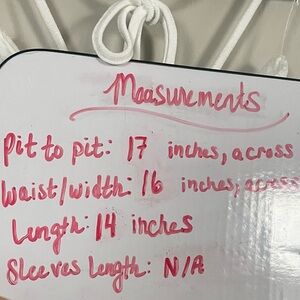 Measurements
Pit to pit: 17 inches, across
Waist/width: 16 inches, across
Length: 14 inches
Sleeves length: N/A